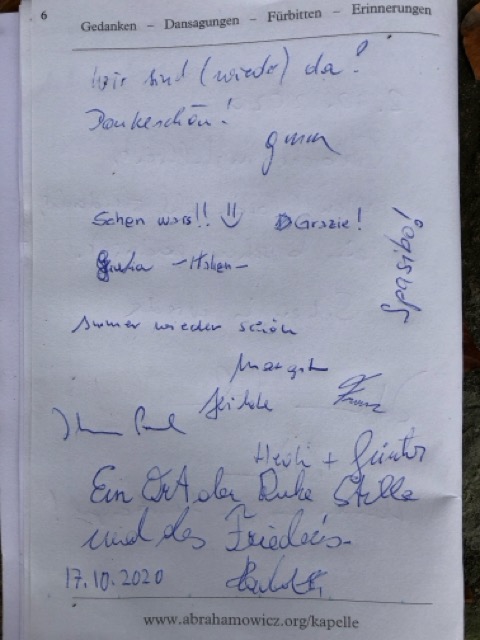 6
Gedanken – Dansagungen – Fürbitten – Erinnerungen
Wir sind (wieder) da!
Dankeschön!
Schön wars!! Grazie!
-Italien-
Spasibo!
Immer wieder schön
Margit
Franz
Heidi + Günter
Ein Ort der Ruhe Stille
und des Friedens-
17.10.2020
www.abrahamowicz.org/kapelle